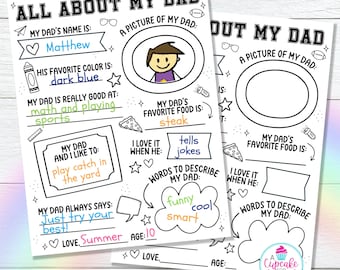 ALL ABOUT MY DAD
MY DAD'S NAME IS:
Matthew
A PICTURE OF MY DAD:
HIS FAVORITE COLOR IS:
dark blue
MY DAD IS REALLY GOOD AT:
math and playing
sports
MY DAD'S
FAVORITE FOOD IS:
steak
MY DAD
AND I LIKE TO:
play catch in
the yard
I LOVE IT
WHEN HE:
tells
jokes
WORDS TO DESCRIBE
MY DAD:
funny
cool
smart
MY DAD ALWAYS SAYS:
Just try your
best!
LOVE, Summer AGE: 10
ABOUT MY DAD
A PICTURE OF MY DAD:
MY DAD'S
FAVORITE FOOD IS:
I LOVE IT
WHEN HE:
WORDS TO DESCRIBE
MY DAD:
AGE:
A
Cupcake